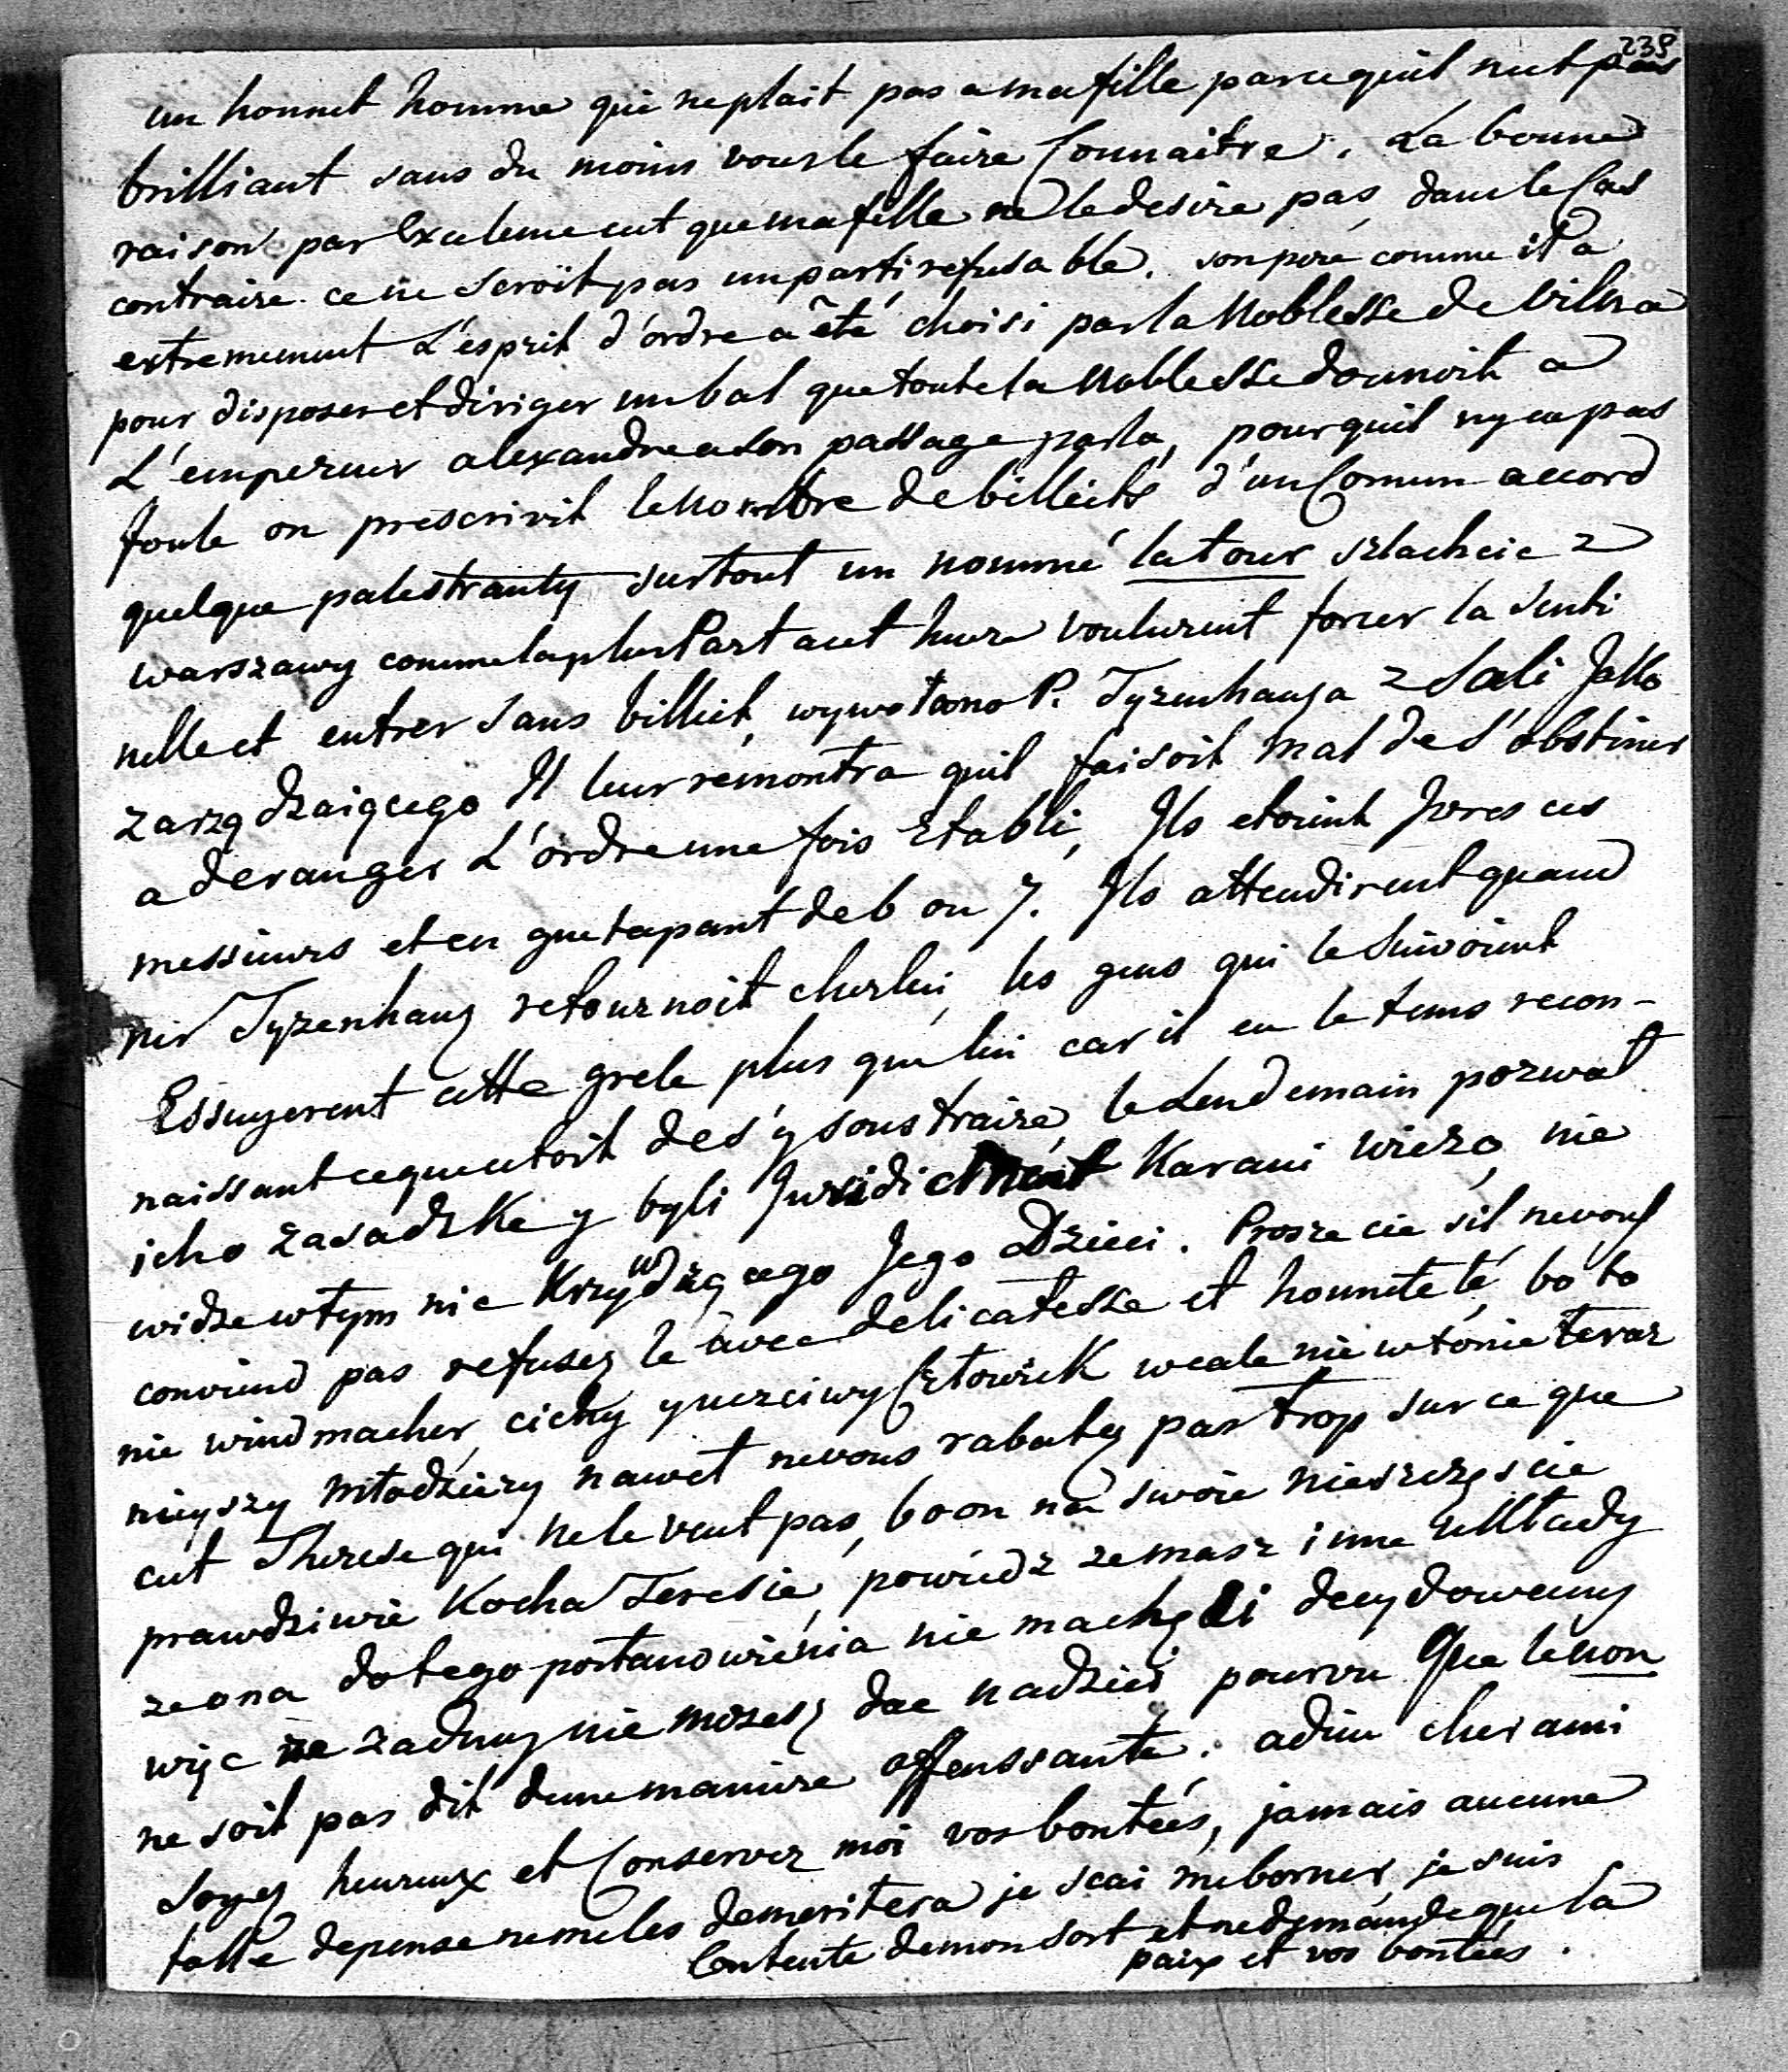 239
un honnet homme qui ne plait pas a ma fille parcequil n'est pas
brilliant sans du moins vous le faire Connaitre. La bonne
raison par Exelence est que ma fille ne le desire pas, dans le Cas
contraire ce ne seroit pas un parti refusable. son pere comme il a
extremement L'esprit d'ordre a êté choisi par la Noblesse de Vilna
pour disposer et diriger un bal que toute la Noblesse donnoit a
L'empereur alexandre a son passage par la, pour quil ny ea pas
foule on prescrivit le Nombre de billiets d'un Comun accord
quelque palestranty surtout un nommé la tour szlachcic z
warszawy comme la plus Part a cet heure voulurent forcer la senti
nelle et entrer sans billiet, wywołano P. Tyzenhauza z Sali Jako
zarządzaiącego Il leur remontra quil faisoit mal de s'obstiner
a deranger L'ordre une fois Etabli, Ils etoient Ivres ces
messieurs et en guetapant de 6 ou 7. Ils attendirent quand
mr Tyzenhauz retournoit cher lui, les gens qui le suivoient
Essuyerent cette grele plus que lui car il eu le tems recon-
naissant ceque cetoit de s'y soustraire, le Lendemain pozwał
icho zasadzke y byli Juridict Karani wiezo, nie
widze w tym nic Krzywdzącego Jego Dzieci. Prosze cie sil ne vous
conviend pas refusez le avec delicatesse et honneteté, bo to
nie windmacher, cichy y uczciwy Człowiek wcale nie w tonie teraz
nieyszy młodziezy nawet ne vous rabatez pas trop sur ce que
cest Therese qui ne le veut pas, bo on na swoie nieszczęscie
prawdziwie Kocha Teresie, powiedz ze masz inne układy
ze ona do tego postanowienia nie ma chęci decydowaney
więc ze zadney nie mozesz dac nadziei pourvu Que le non
ne soit pas dit dune maniere offenssante. adieu cher ami
Soyez heureux et Conservez moi vos bontées, jamais aucune
folle depense ne me les demeritera je scai me borner, je suis
Contente de mon sort et ne demande que la
paix et vos bontées.